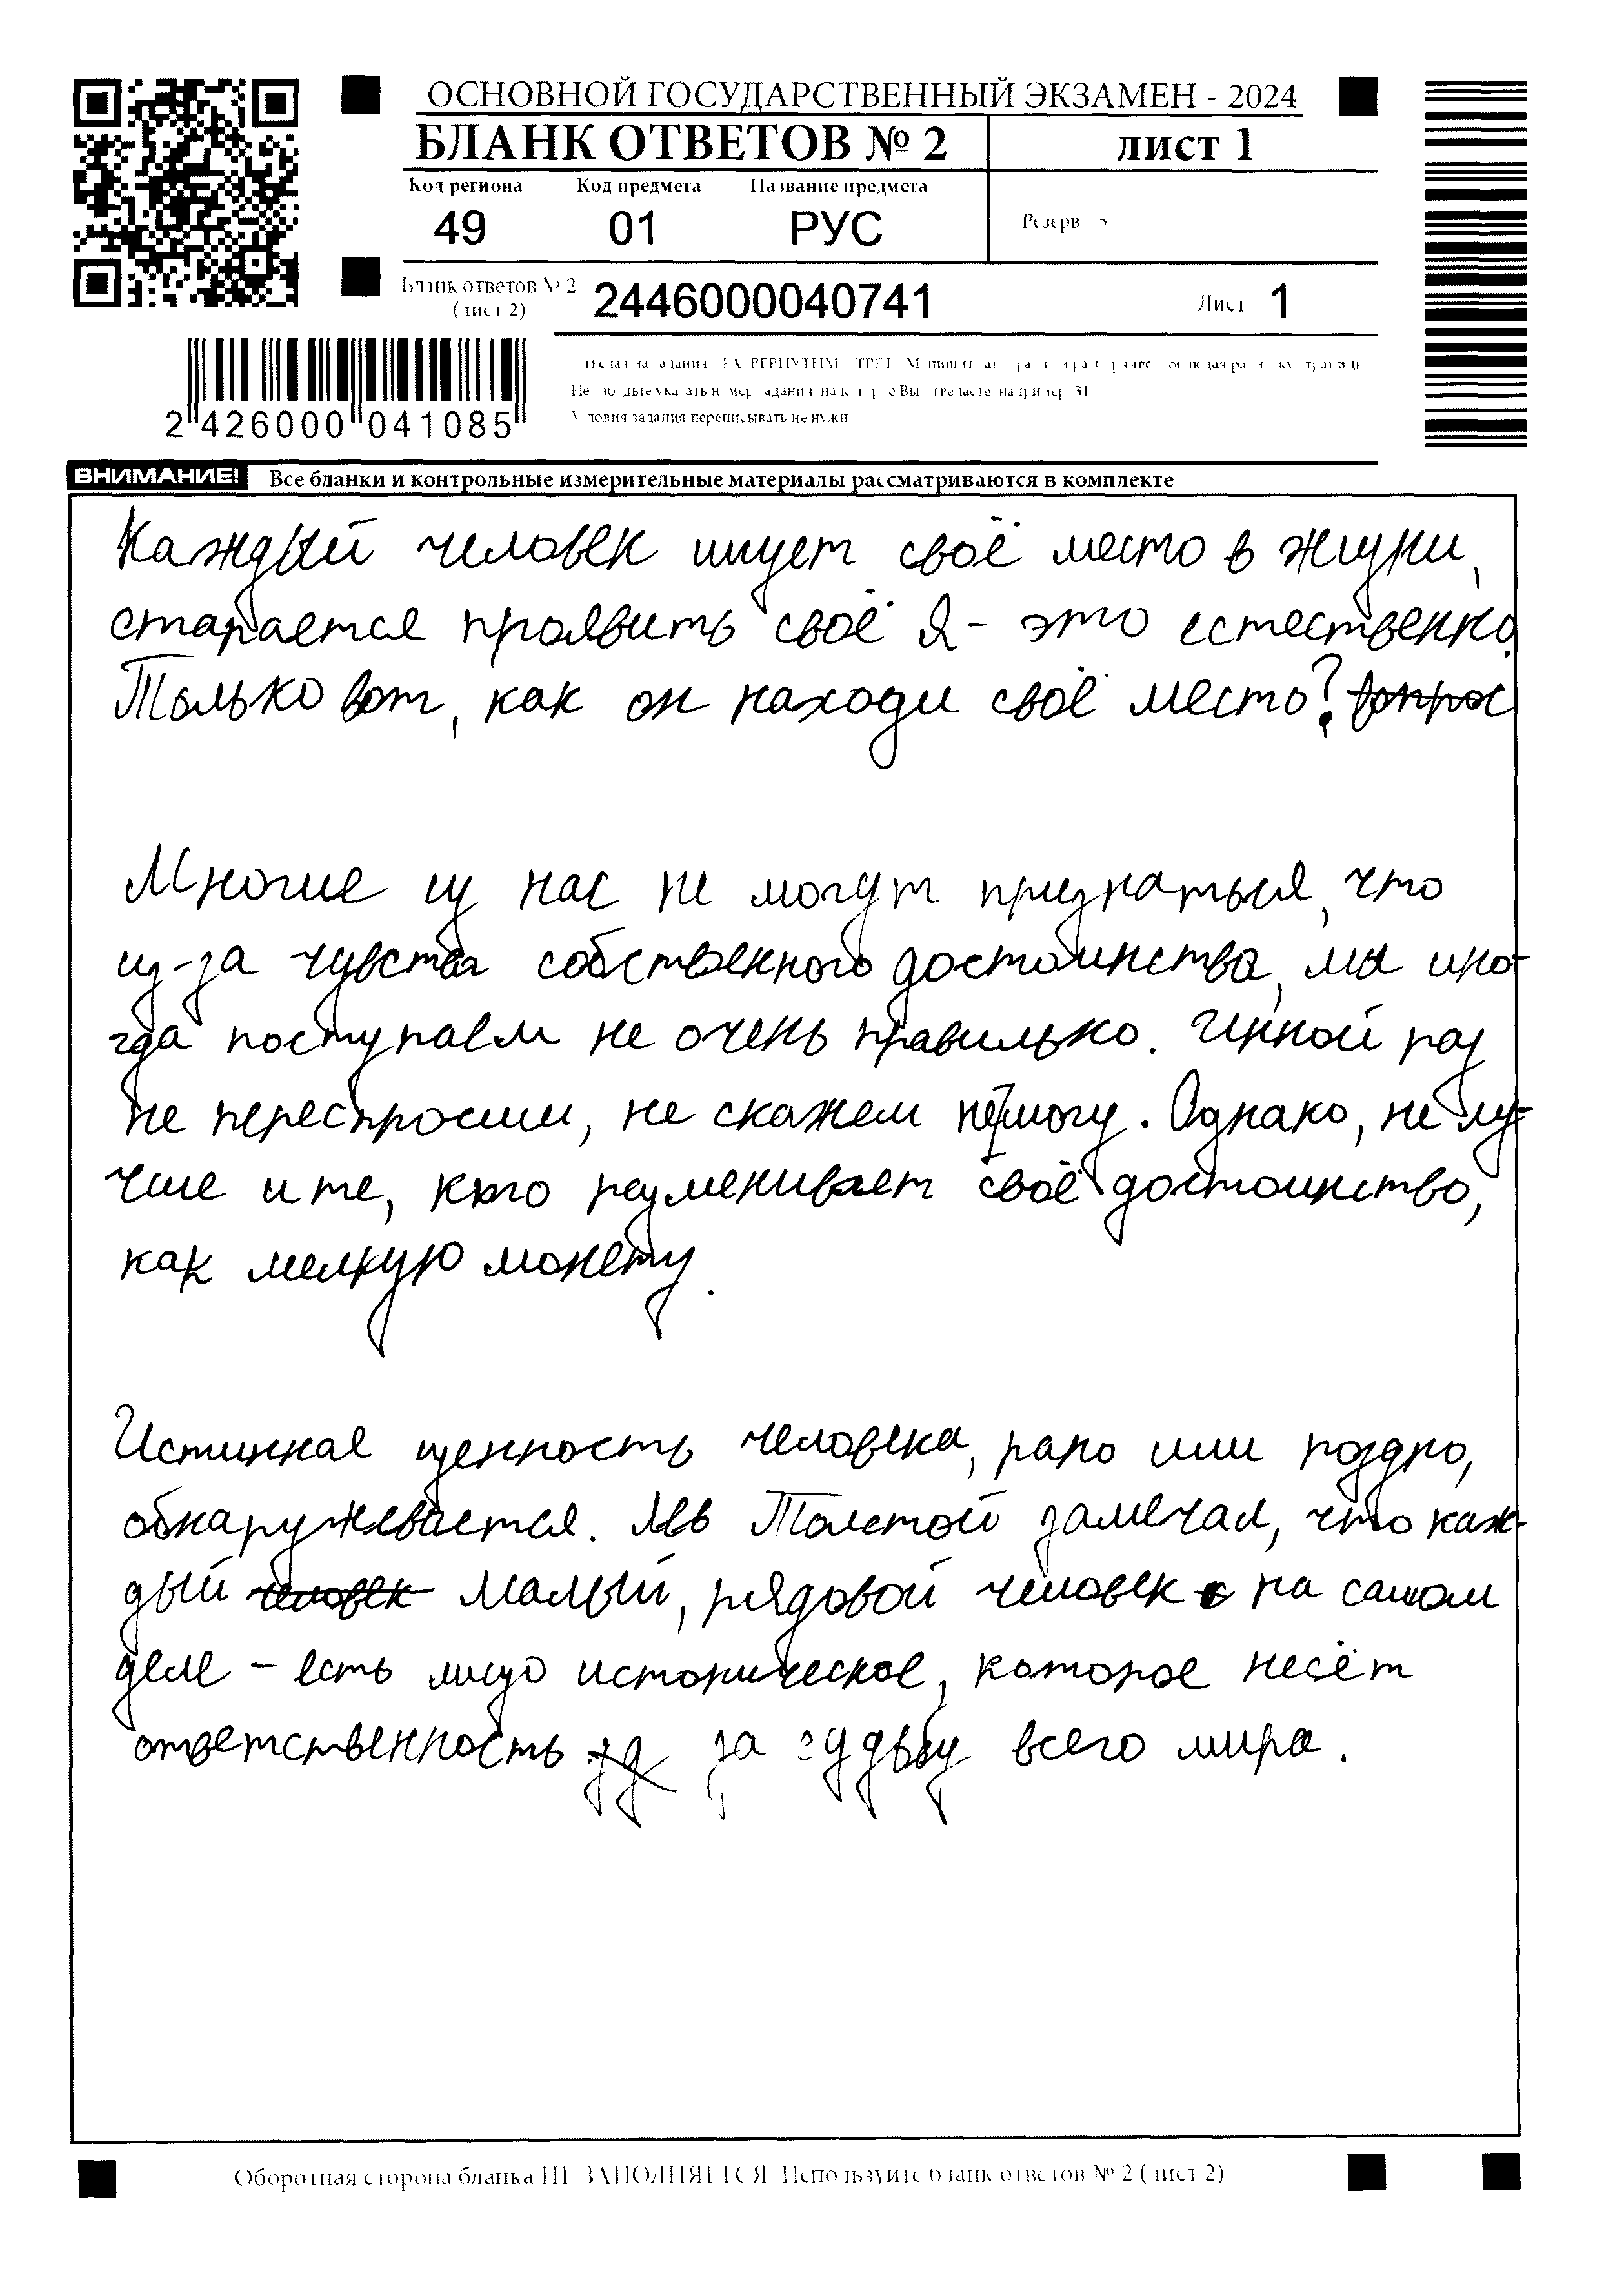 ОСНОВНОЙ ГОСУДАРСТВЕННЫЙ ЭКЗАМЕН - 2024
БЛАНК ОТВЕТОВ № 2
лист 1
Код региона Код предмета Название предмета
49 01 РУС
Резерв
Бланк ответов № 2
(лист 2)
2446000040741
Лист 1
2 426000 041085
Условия задания переписывать не нужн
ВНИМАНИЕ! Все бланки и контрольные измерительные материалы рассматриваются в комплекте
Каждый человек ищет своё место в жизни,
старается проявить своё Я - это естественно.
Только вот, как он находи своё место? вопрос
Многие из нас не могут признаться, что
из-за чувства собственного достоинства, мы ино-
гда поступаем не очень правильно. Инной раз
не переспросим, не скажем не могу. Однако, не лу-
чше и те, кто разменивает своё достоинство,
как мелкую монету.
Истинная ценность человека, рано или поздно,
обнаруживается. Лев Толстой замечал, что каж-
дый человек малый, рядовой человек на самом
деле - есть лицо историческое, которое несёт
ответственность за за судьбу всего мира.
Оборотная сторона бланка НЕ ЗАПОЛНЯЕТСЯ. Используйте бланк ответов № 2 (лист 2)